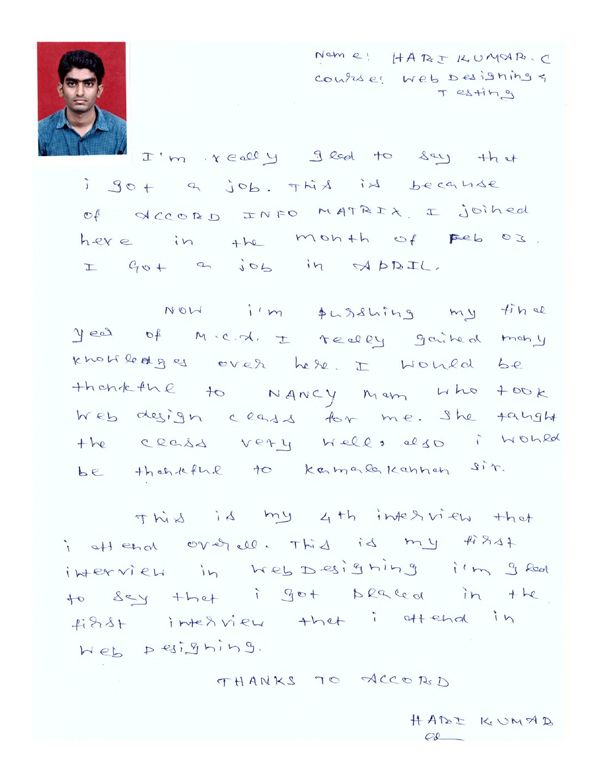 Name: HARI KUMAR. C
Course: Web Designing &
Testing
I'm really glad to say that
i got a job. This is because
of ACCORD INFO MATRIX. I joined
here in the month of Feb 03.
I Got a job in APRIL.
NOW i'm purshing my final
year of M.C.A. I really gained many
knowledges over here. I would be
thankful to NANCY Mam who took
web design class for me. She taught
the class very well, also i would
be thankful to Kamalakannan sir.
This is my 4th interview that
i attend overall. This is my first
interview in Web Designing i'm glad
to say that i got placed in the
first interview that i attend in
Web Designing.
THANKS TO ACCORD
HARI KUMAR